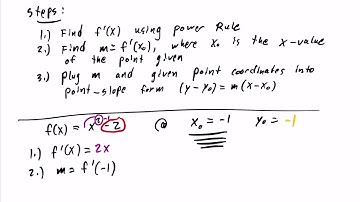 steps:
1.) Find f'(x) using power Rule
2.) Find m = f'(x₀), where x₀ is the x-value
of the point given
3.) Plug m and given point coordinates into
point-slope form (y-y₀) = m(x-x₀)
f(x) = x²⁻¹ - 2 @ x₀ = -1 y₀ = -1
1.) f'(x) = 2x
2.) m = f'(-1)